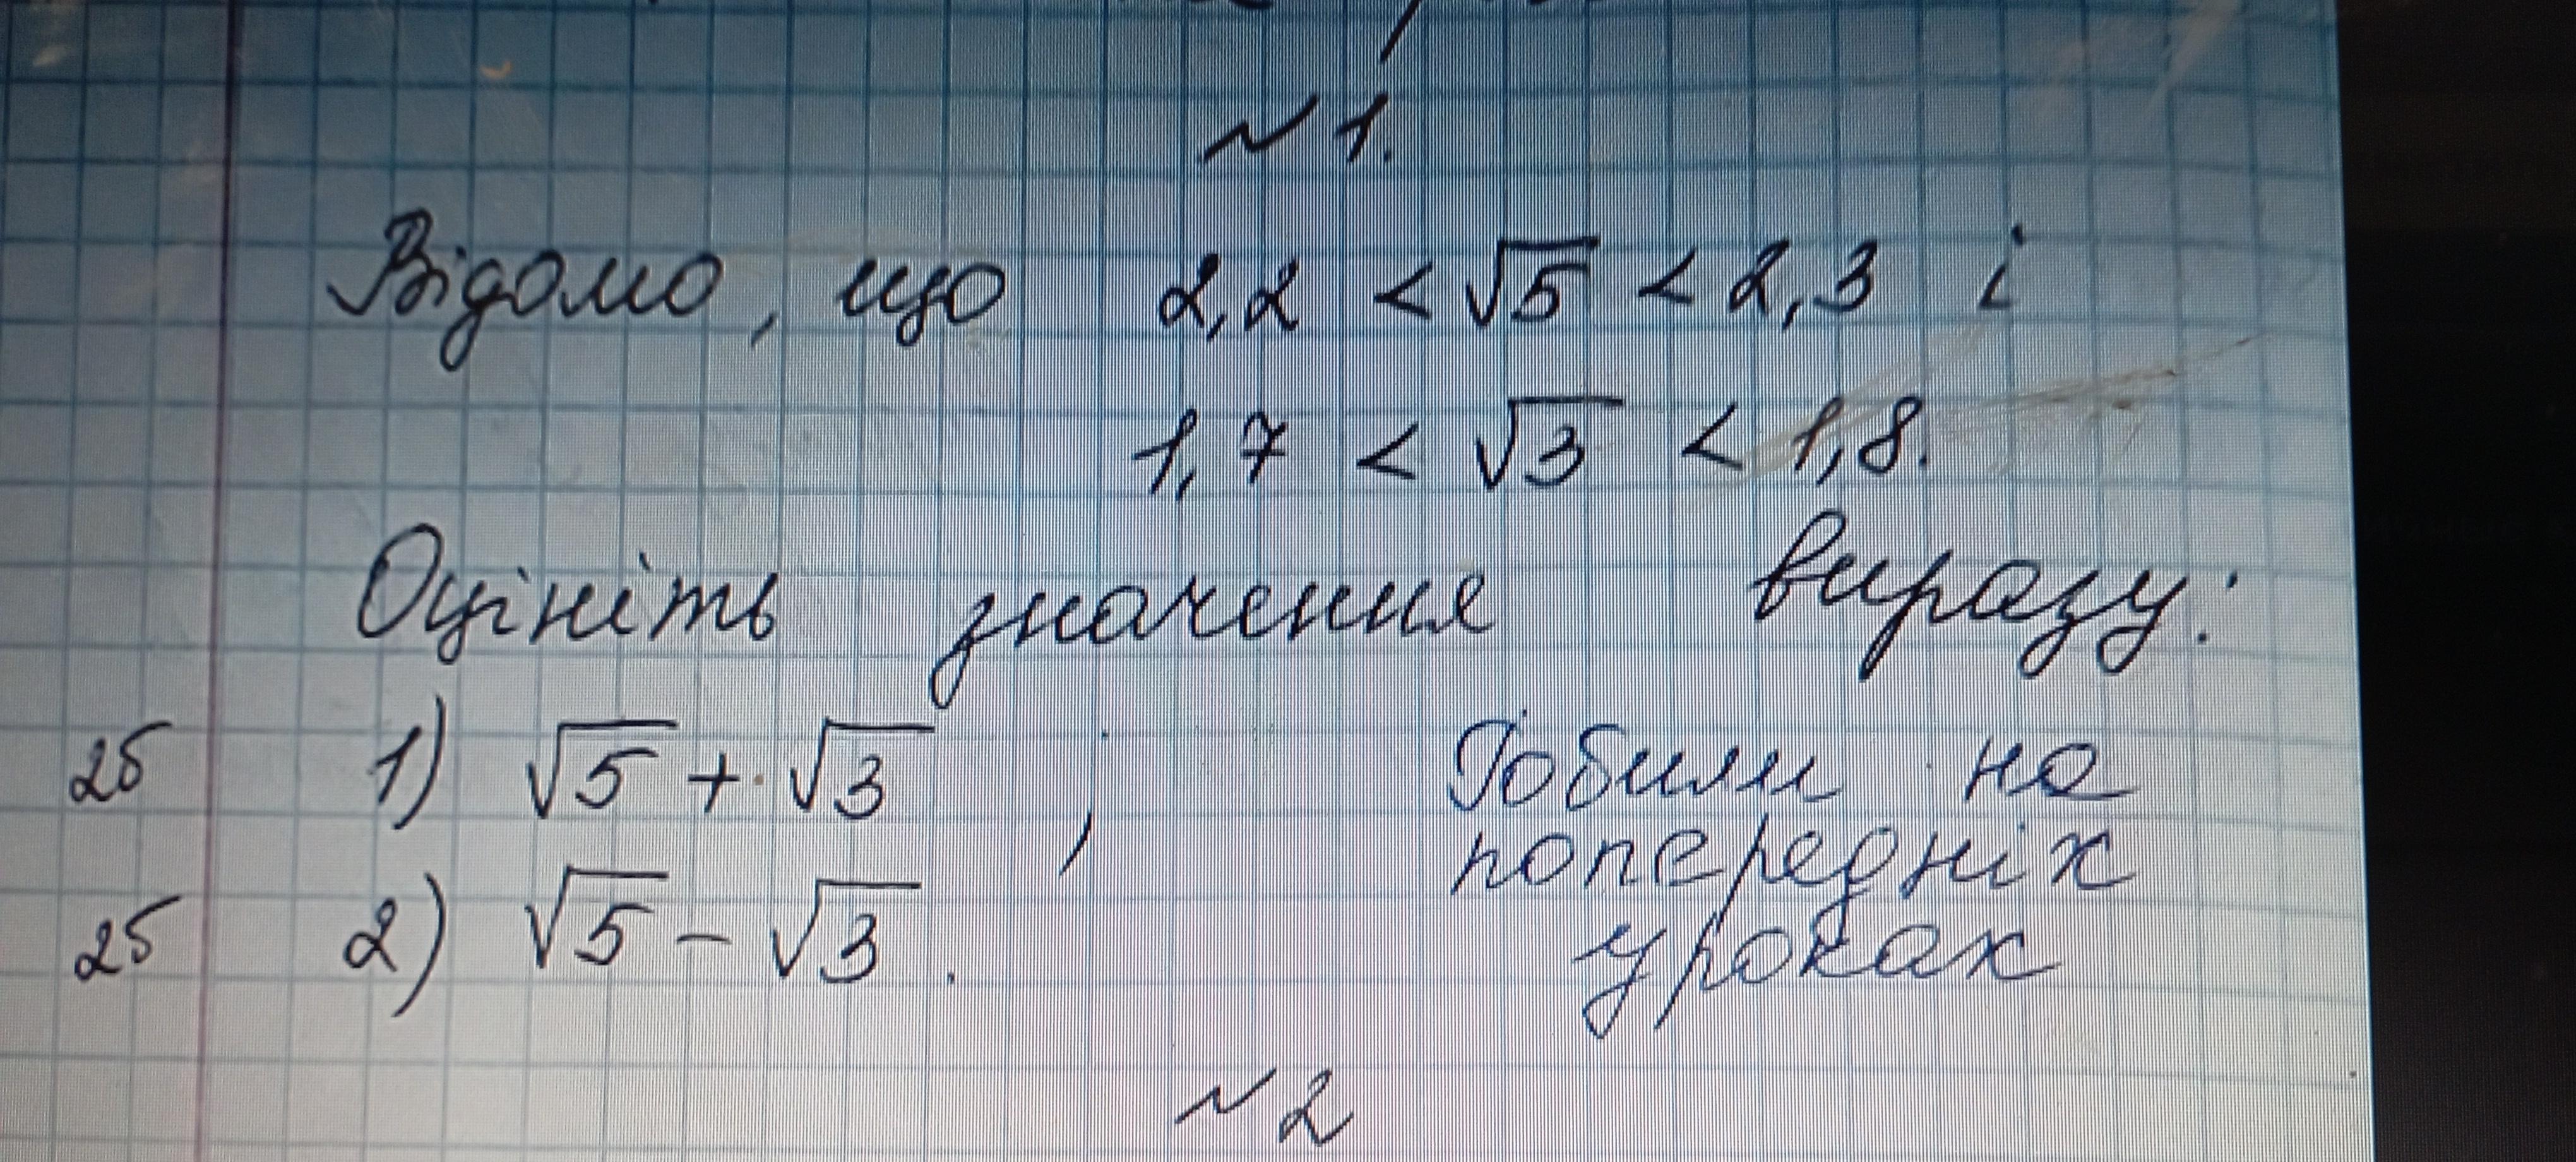 №1.
Відомо, що 2,2 < √5 < 2,3 і
1,7 < √3 < 1,8.
Оцініть значення виразу:
2б 1) √5 + √3 ; Робили на
попередніх
2б 2) √5 − √3 . уроках
№2